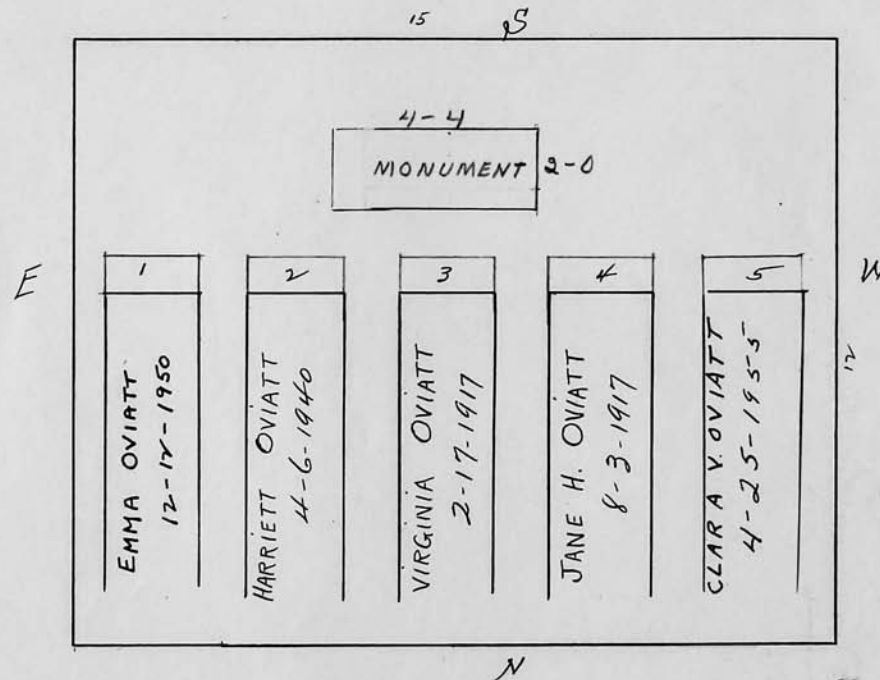 15 S
4-4
MONUMENT 2-0
E W
1 2 3 4 5
12
EMMA OVIATT
12-12-1950
HARRIETT OVIATT
4-6-1940
VIRGINIA OVIATT
2-17-1917
JANE H. OVIATT
8-3-1917
CLARA V. OVIATT
4-25-1955
N